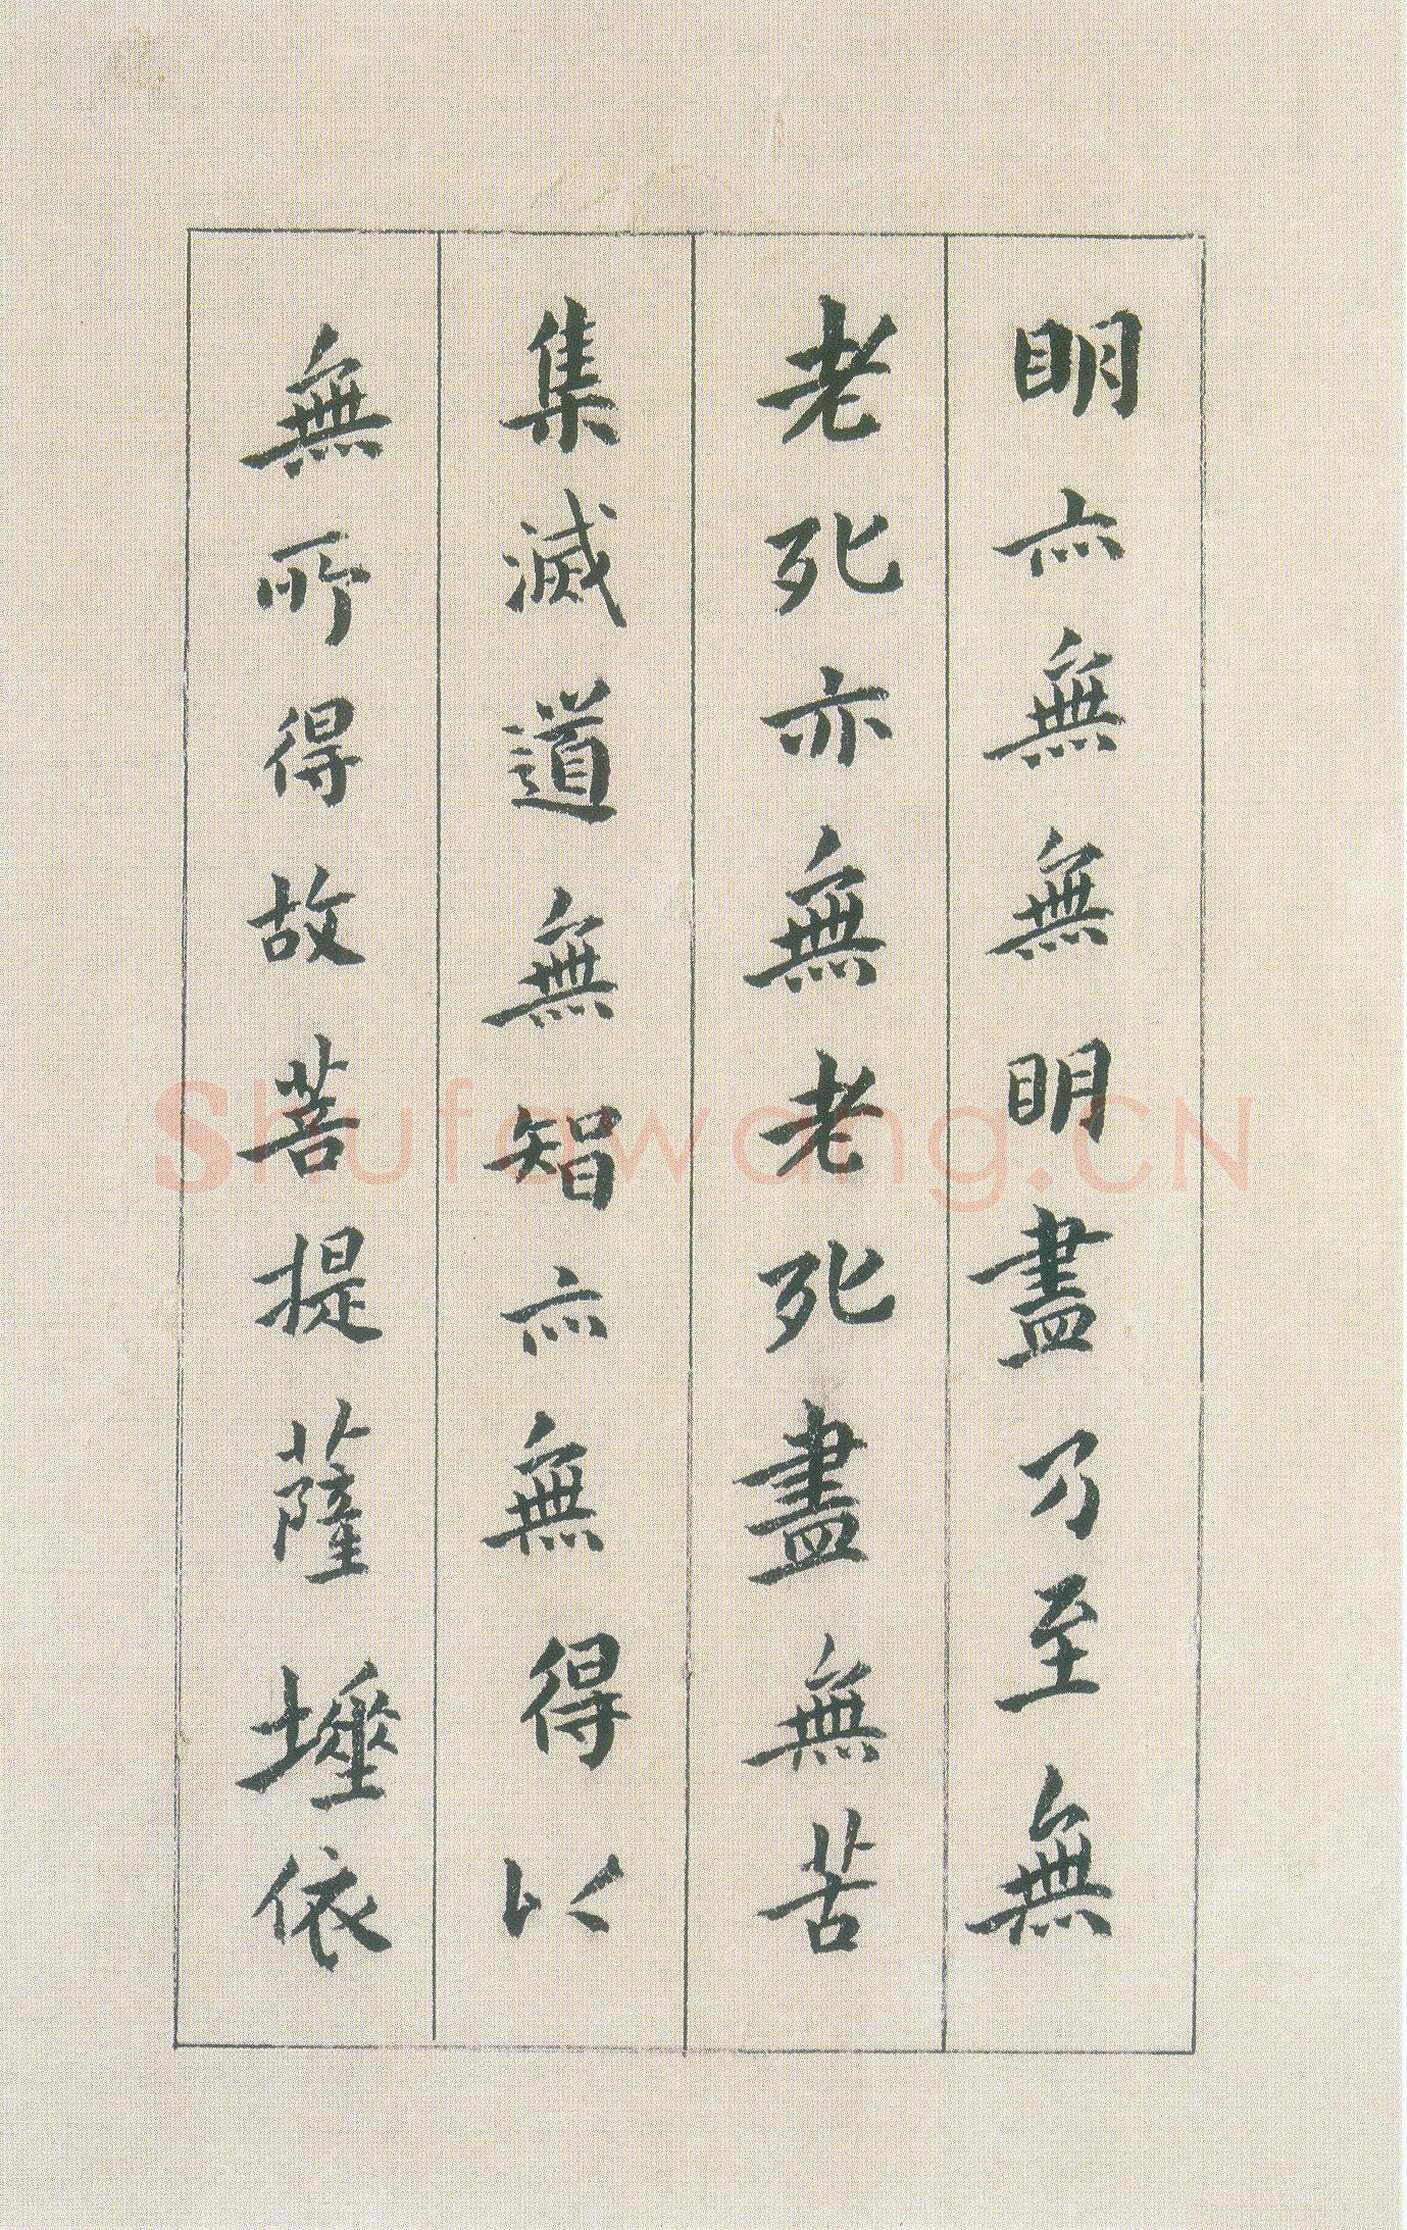 明亦無無明盡乃至無
老死亦無老死盡無苦
集滅道無智亦無得以
無所得故菩提薩埵依
Shufawang.CN